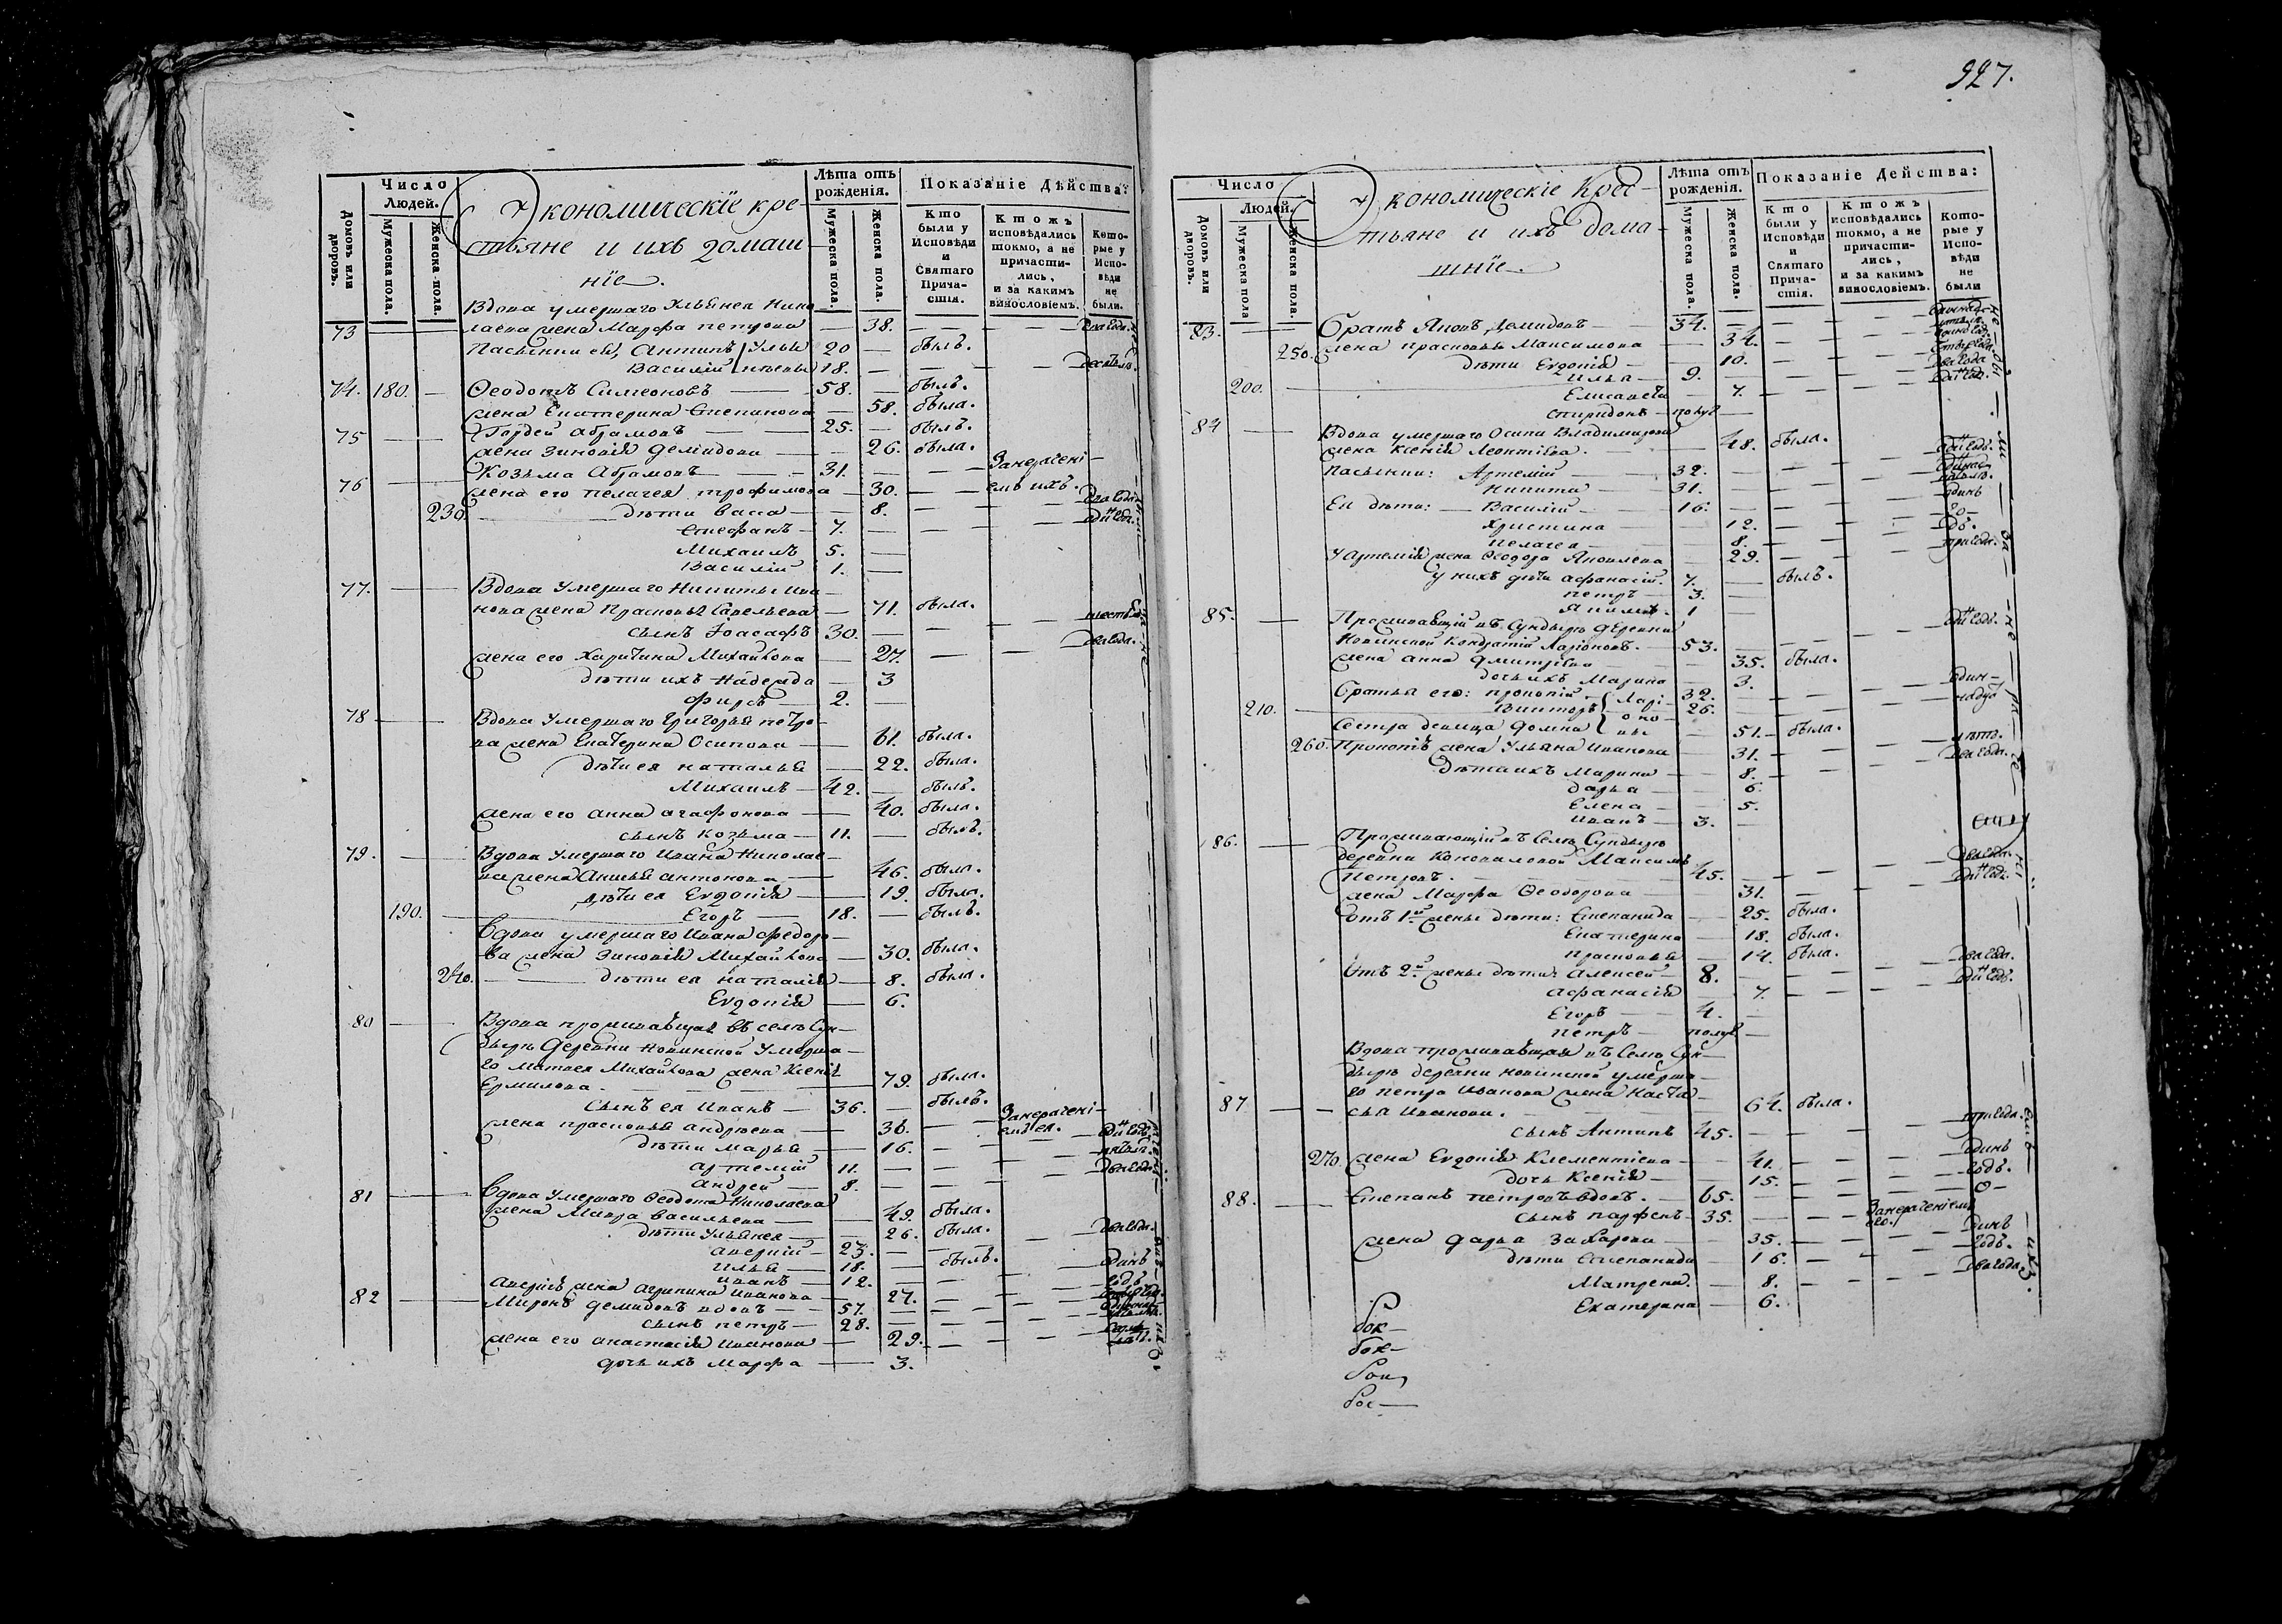 Число Людей.
Домовъ или дворовъ.
Мужеска пола.
Женска пола.
Экономическіе кре-
стьяне и ихъ домаш-
ніе.
Лѣта отъ рожденія.
Мужеска пола.
Женска пола.
Показаніе Дѣйства:
Кто были у Исповѣди и Святаго Прича-стія.
Ктожъ исповѣдались токмо, а не причасти-лись, и за какимъ винословіемъ.
Кото-рые у Испо-вѣди не были.
Вдова умершаго Ульянея Нико-
73 — — лаева жена Марфа петрова — 38. — — два года.
Пасынки ея, Антипъ Улья 20 — былъ.
Василій неевы 18. — —
74. 180. — Ѳеодотъ Симеоновъ — 58. — былъ.
жена Екатерина Степанова — 58. была.
75 — Гордей Абрамовъ — 25. — былъ.
жена Зиновія Демидова — 26. была.
76 Козьма Абрамовъ — 31. — — Занерачені-
жена его пелагея трофимова — 30. — емъ ихъ.
230. дѣти васса — 8. — — два года
Стефанъ — 7. — одинъ годъ.
Михаилъ 5. —
Василій 1. —
77. — Вдова умершаго Никиты ива-
нова жена Прасковья Савельева — 71. была.
сынъ Іоасафъ 30. — — шесть
жена его Харитина Михайлова — 27. — — два года.
дѣти ихъ Надежда — 3
фирсъ — 2. —
78 — Вдова умершаго Григорья петро-
ва жена Екатерина Осипова — 61. была.
дѣти ея наталья — 22. была.
Михаилъ — 42. — былъ.
жена его анна агафонова — 40. была.
сынъ козьма — 11. — былъ.
79. — Вдова умершаго Ивана Николае-
ва жена Анисья антонова — 46. была.
дѣти ея Евдокія — 19. была.
190. Егоръ — 18. — былъ.
Вдова умершаго Ивана федоро-
ва жена Зиновія Михайлова — 30. была.
240. — дѣти ея наталія — 8. была.
Евдокія — 6.
80 — Вдова проживающая въ селѣ Сун-
дырѣ деревни Новинской умерша-
го матвея Михайлова жена Ксенія
Ермилова. — 79. была.
сынъ ея Иванъ — 36. — былъ.
жена прасковья андреева — 36. — — Занерачені-емъ ея. одинъ годъ
дѣти марья — 16. —
артемій 11. — — два года
андрей — 8. —
81 — Вдова умершаго Ѳеодота Николаева
жена Мавра васильева — 49. была.
дѣти Ульянея — 26. была.
аверкій — 23. — — два года.
илья — 18. — былъ.
иванъ — 12. — — одинъ
Аверкіѣ жена агрипина иванова — 27. — годъ
82 — Миронъ демидовъ вдовъ — 57. —
сынъ петръ — 28. —
жена его анастасія Иванова — 29. —
дочь ихъ марфа — 3.
927.
Число Людей.
Домовъ или дворовъ.
Мужеска пола
Женска пола.
Экономическіе Крес-
тьяне и ихъ дома-
шніе.
Лѣта отъ рожденія.
Мужеска пола.
Женска пола.
Показаніе Действа:
Кто были у Исповѣди и Святаго Прича-стія.
Ктожъ исповѣдались токмо, а не причасти-лись, и за какимъ винословіемъ.
Кото-рые у Испо-вѣди не были
83. — Братъ Яковъ Демидовъ — 34. —
250. жена прасковья Максимова — 34. —
дѣти Евдокія — 10. —
Илья — 9. — два года
200. — Елисавета — 7. — одинъ годъ.
Спиридонъ — полуг —
84 — Вдова умершаго Осипа Владимирова
жена Ксенія Леонтіева. — 48. была.
пасынки: Артемій — 32. — одинъ годъ.
Никита — 31. —
Ея дѣти: — Василій — 16. — одинъ
Христина — 12. — го-
пелагея — 8. — дъ.
У Артемія жена Ѳеодора Яковлева — 29. — три года.
у нихъ дѣти афанасій. 7. — былъ.
петръ — 3. —
Якимъ. 1 —
85. — Проживающій въ Сундырѣ деревни
Новинской Кондратій Ларіоновъ. — 53. — одинъ годъ.
жена анна дмитріева — 35. была.
дочь ихъ Марина — 3.
Братья его: прокопій — Ларі- 32. — один-
210. — Викторъ оно- 26. —
Сестра девица домна вы — 51. — была.
260. Прокопіѣ жена Ульяна Иванова — 31. — два года.
Дѣти ихъ Марина — 8. —
дарья — 6.
Елена — 5.
иванъ — 3. —
86. — Проживающій въ Селѣ Сундырѣ
деревни Коноваловой Максимъ
Петровъ. — 45. — два года.
жена Марфа Ѳеодорова — 31. — одинъ годъ.
Отъ 1й жены дѣти: Степанида — 25. была.
Екатерина — 18. была.
прасковья — 14. была.
Отъ 2й жены дѣти Алексей — 8. — два года.
афанасія — 7. — одинъ годъ.
Егоръ — 4. —
петръ — полуг —
Вдова проживающая въ Селѣ Сун-
дырѣ деревни новинской умерша-
го петра Иванова жена Наста-
87 — — сья Иванова. — 64. была.
сынъ Антипъ 45. — три года.
270. жена Евдокія Клементіева — 41. — одинъ
дочь Ксенія — 15. — годъ.
88. — Степанъ петровъ вдовъ. — 65. —
сынъ парфенъ 35. — Занераченіемъ его.
жена дарья захарова — 35. — одинъ
дѣти Степанида — 16. — годъ.
Матрена. — 8. — два года.
Екатерина — 6.